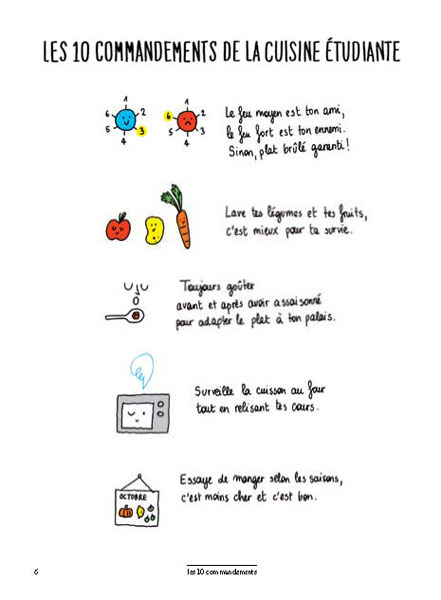 LES 10 COMMANDEMENTS DE LA CUISINE ÉTUDIANTE
1
6 2
5 3
4
1
6 2
5 3
4
Le feu moyen est ton ami,
le feu fort est ton ennemi.
Sinon, plat brûlé garanti !
Lave tes légumes et tes fruits,
c'est mieux pour ta survie.
Toujours goûter
avant et après avoir assaisonné
pour adapter le plat à ton palais.
Surveille la cuisson au four
tout en relisant tes cours.
OCTOBRE
Essaye de manger selon les saisons,
c'est moins cher et c'est bon.
6
les 10 commandements